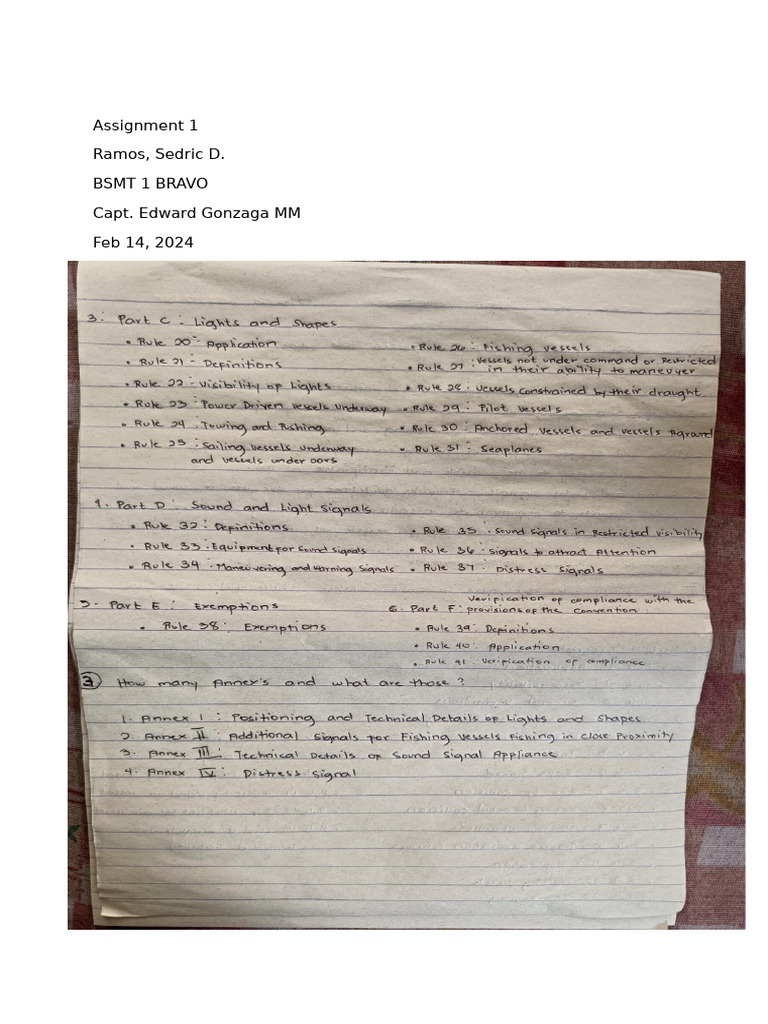 Assignment 1
Ramos, Sedric D.
BSMT 1 BRAVO
Capt. Edward Gonzaga MM
Feb 14, 2024
3. Part C : Lights and Shapes
• Rule 20 : Application
• Rule 21 - Definitions
• Rule 22 : Visibility of Lights
• Rule 23 : Power Driven Vessels Underway
• Rule 24 . Towing and Pushing
• Rule 25 : Sailing Vessels Underway
and Vessels under oors
• Rule 26 : Fishing Vessels
• Rule 27 : Vessels not under command or Restricted
in their ability to maneuver
• Rule 28 : Vessels Constrained by their draught
• Rule 29 : Pilot Vessels
• Rule 30 : Anchored Vessels and Vessels Aground
• Rule 31 : Seaplanes
4. Part D : Sound and Light Signals
• Rule 32 : Definitions
• Rule 33 : Equipment for Sound Signals
• Rule 34 : Maneuvering and Warning Signals
• Rule 35 : Sound Signals in Restricted Visibility
• Rule 36 : Signals to attract Attention
• Rule 37 : Distress Signals
5. Part E : Exemptions
• Rule 38 : Exemptions
6. Part F : Verification of compliance with the
provisions of the Convention
• Rule 39 : Definitions
• Rule 40 : Application
• Rule 41 : Verification of compliance
3 How many Annex's and what are those ?
1. Annex I : Positioning and Technical Details of Lights and Shapes
2. Annex II : Additional Signals for Fishing Vessels Fishing in Close Proximity
3. Annex III : Technical Details of Sound Signal Appliance
4. Annex IV : Distress Signal